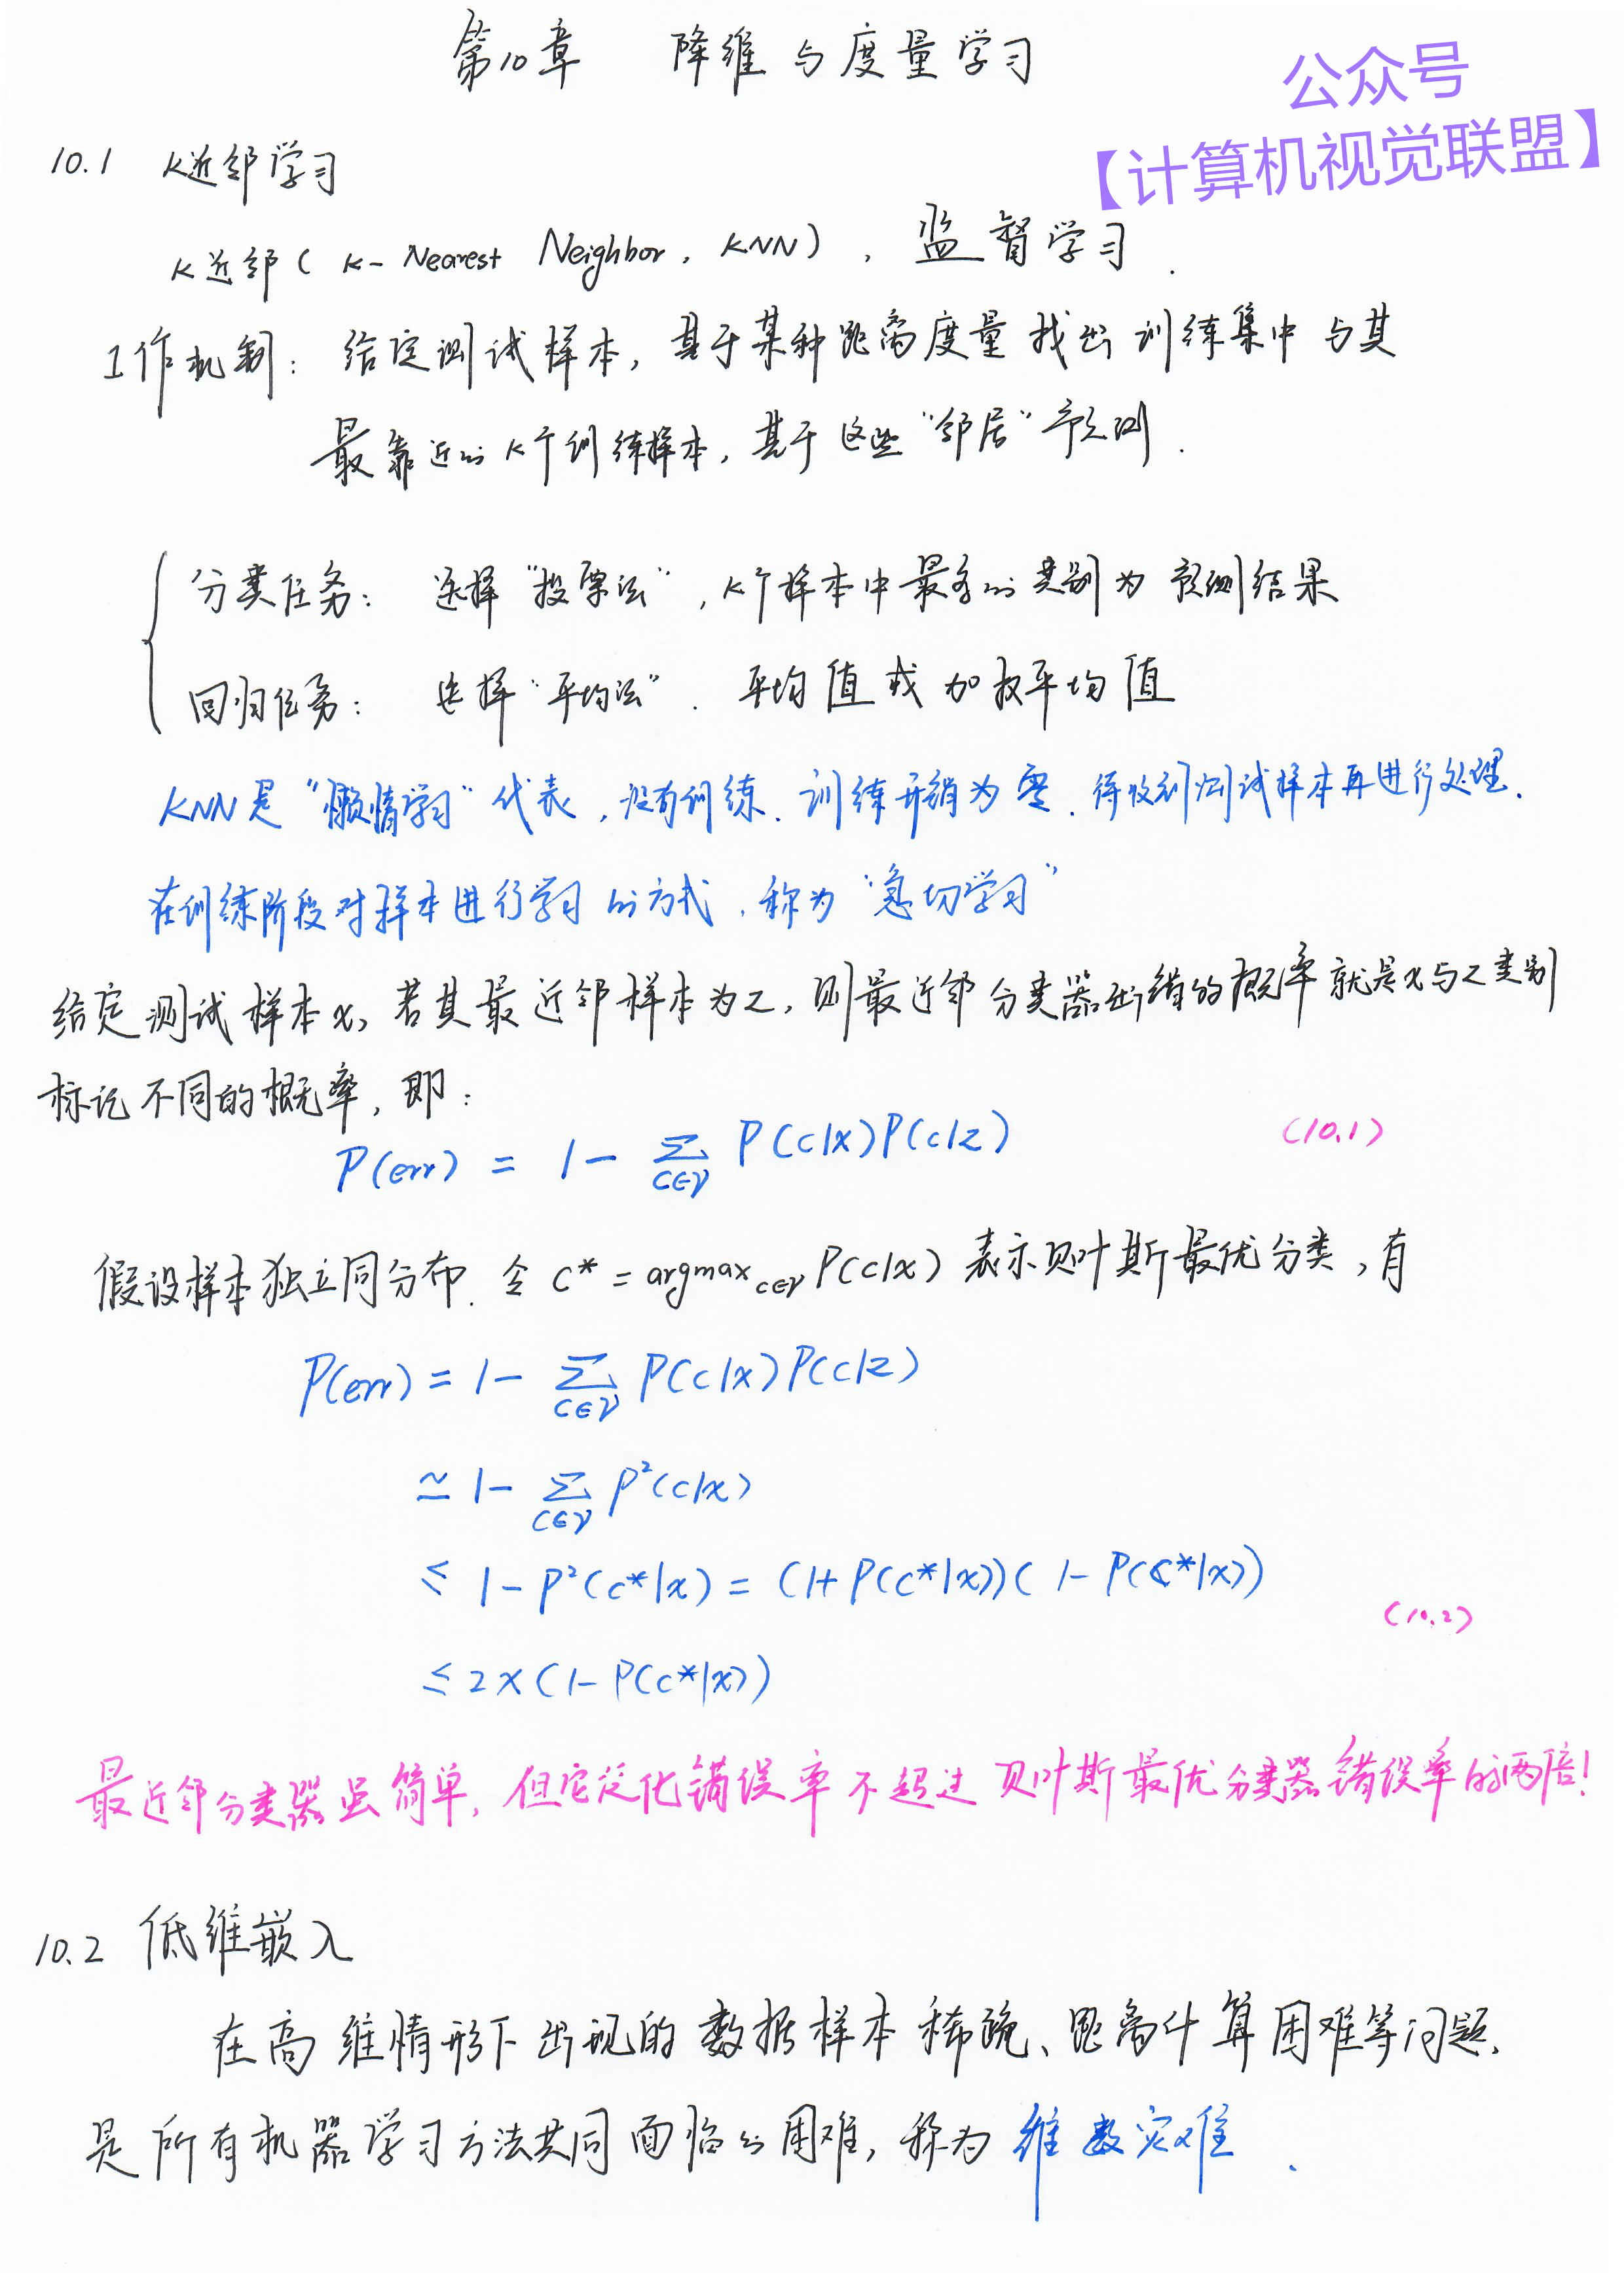 第10章 降维与度量学习
公众号
【计算机视觉联盟】
10.1 K近邻学习
K近邻（K-Nearest Neighbor, KNN），监督学习.
工作机制：给定测试样本，基于某种距离度量找出训练集中与其
最靠近的K个训练样本，基于这些“邻居”预测.
分类任务： 选择“投票法”，K个样本中最多的类别为预测结果
回归任务： 选择“平均法”. 平均值或加权平均值
KNN是“懒惰学习”代表，没有训练. 训练开销为零. 待收到测试样本再进行处理.
在训练阶段对样本进行学习的方式，称为“急切学习”
给定测试样本x，若其最近邻样本为z，则最近邻分类器出错的概率就是x与z类别
标记不同的概率，即：
P(err) = 1 - ∑c∈γ P(c|x)P(c|z) (10.1)
假设样本独立同分布. 令 c* = argmax c∈γ P(c|x) 表示贝叶斯最优分类，有
P(err) = 1 - ∑c∈γ P(c|x)P(c|z)
≃ 1 - ∑c∈γ P²(c|x)
≤ 1 - P²(c*|x) = (1+P(c*|x))(1-P(c*|x))
(10.2)
≤ 2×(1-P(c*|x))
最近邻分类器虽简单，但它泛化错误率不超过贝叶斯最优分类器错误率的两倍！
10.2 低维嵌入
在高维情形下出现的数据样本稀疏、距离计算困难等问题，
是所有机器学习方法共同面临的困难，称为维数灾难.